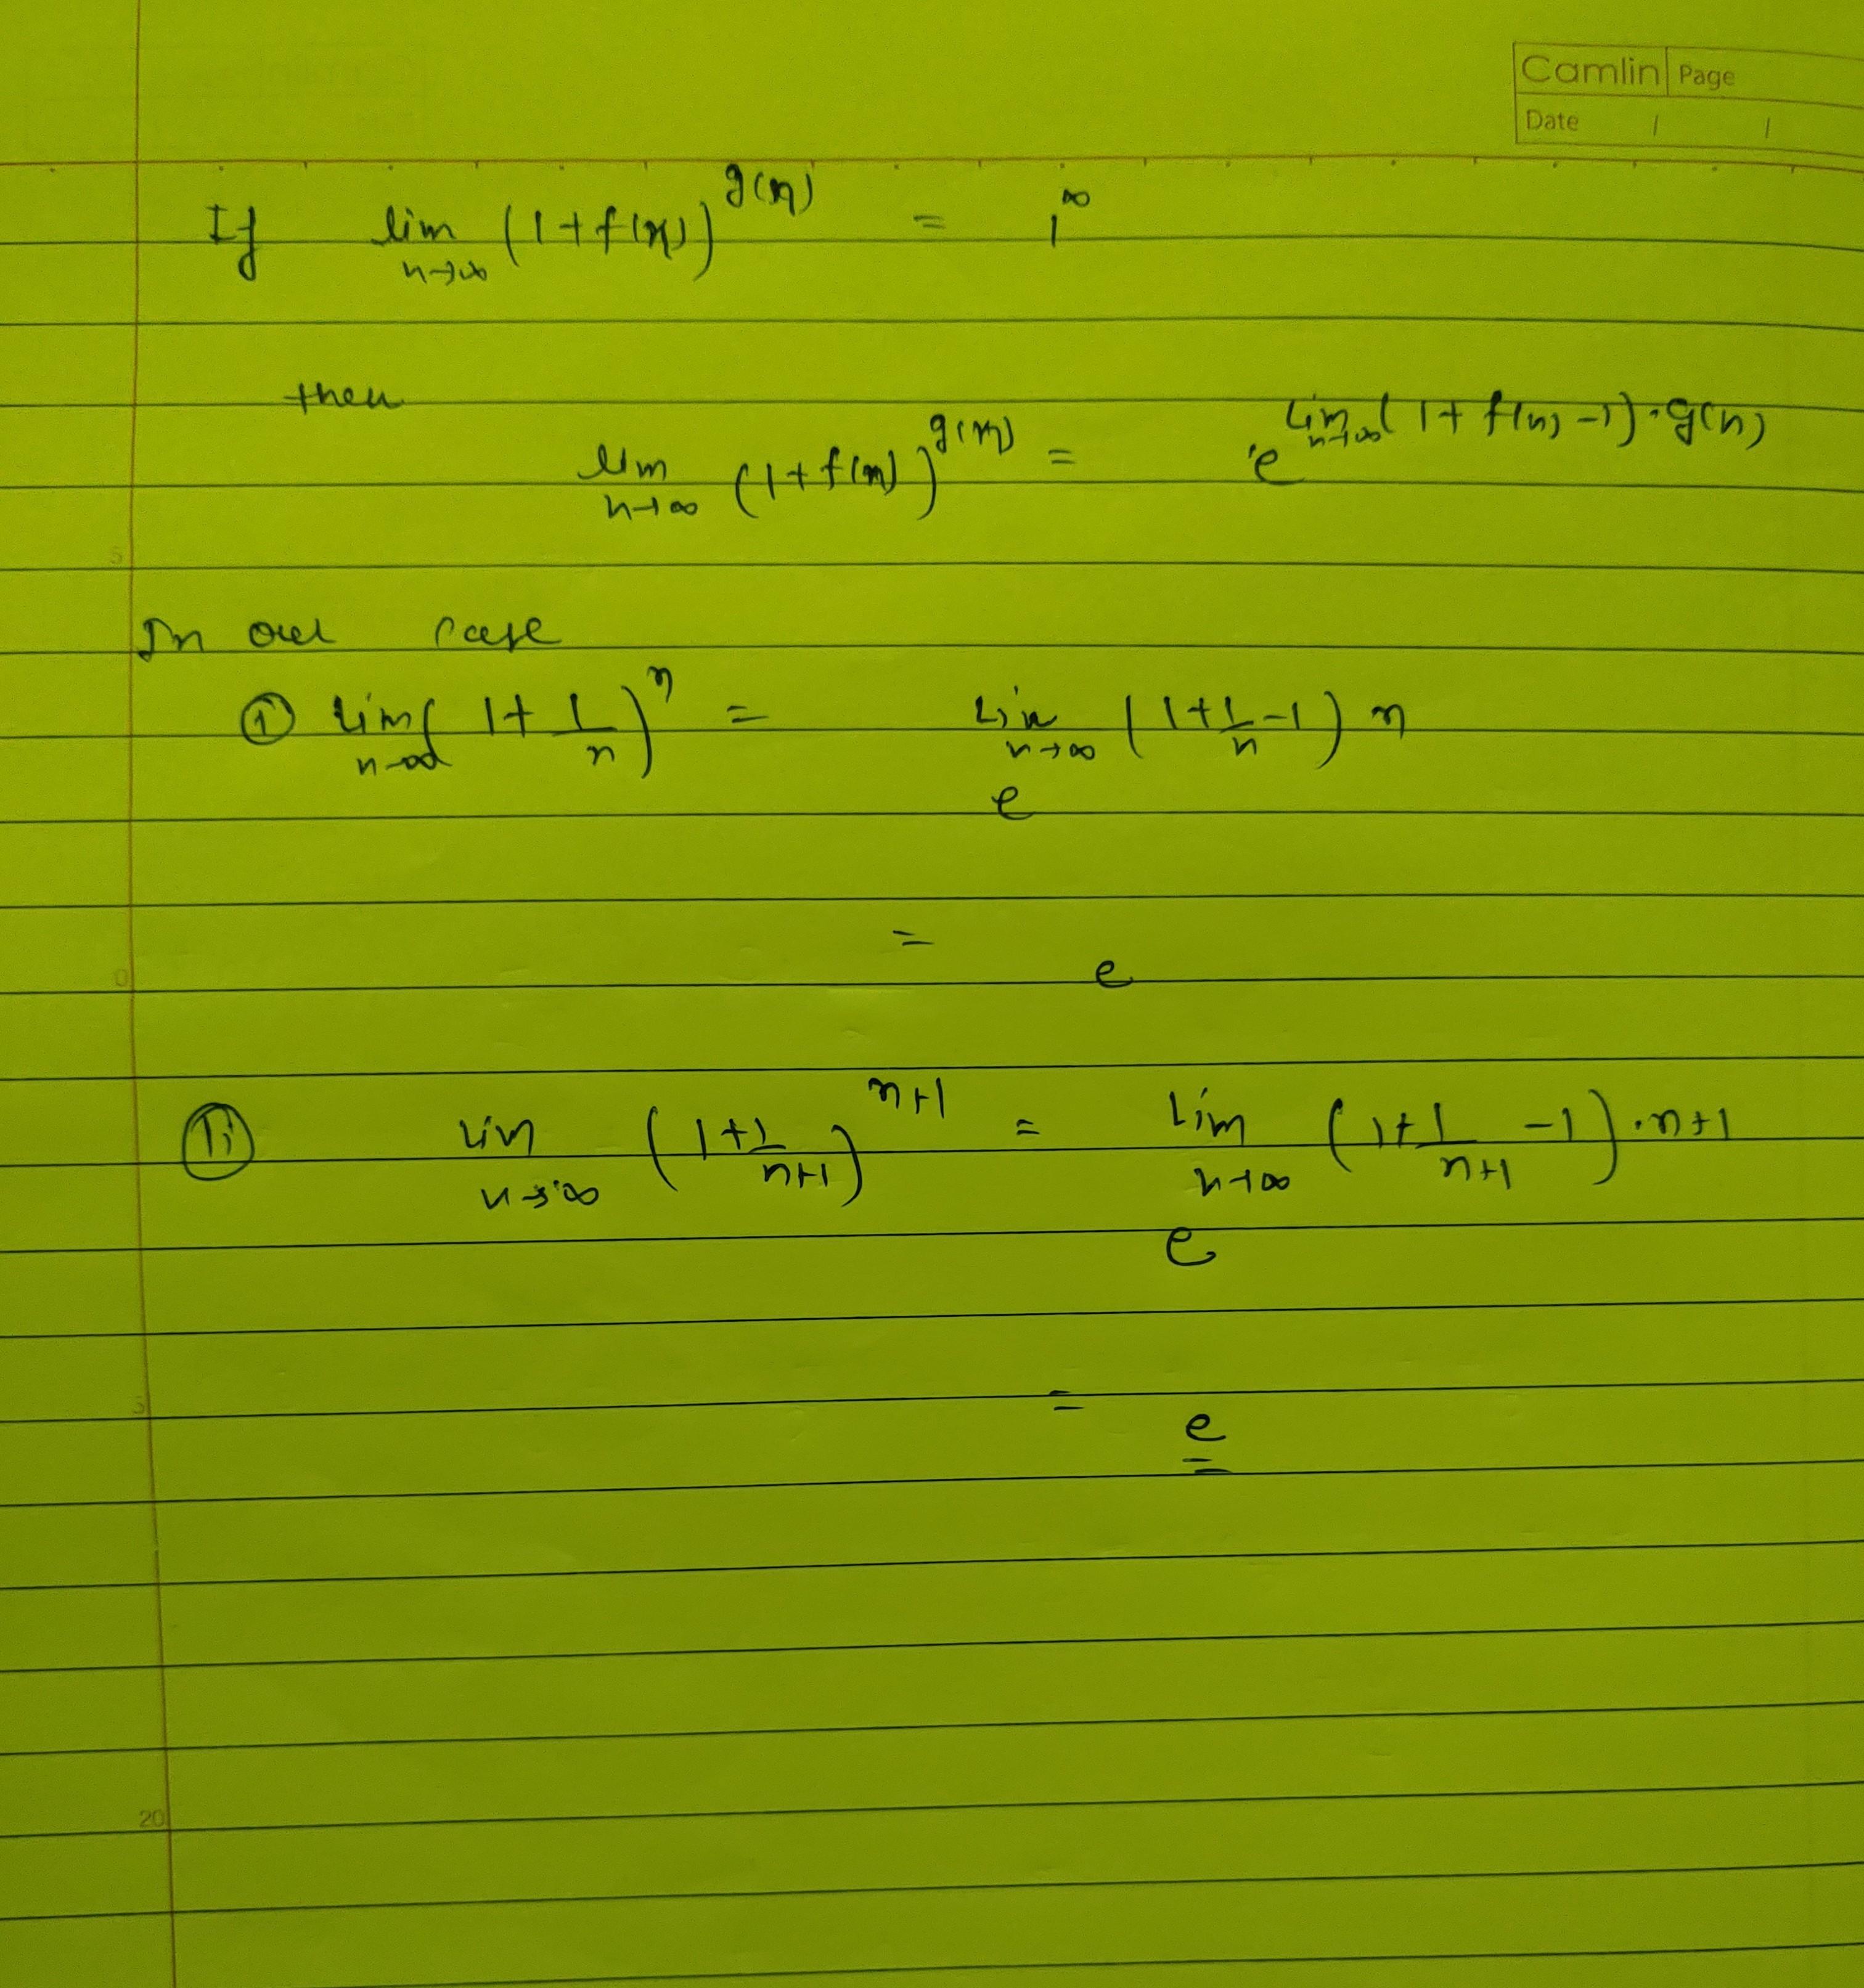 Camlin Page
Date / /
If lim n→∞ (1+f(n))^g(n) = 1^∞
then
lim n→∞ (1+f(n))^g(n) = e^lim n→∞ (1+f(n)-1)·g(n)
5
In our case
① lim n→∞ (1+1/n)^n = e^Lim n→∞ (1+1/n-1) n
= e
0
ⓘⓘ Lim n→∞ (1+1/n+1)^n+1 = e^Lim n→∞ (1+1/n+1 -1)·n+1
5
= e
20